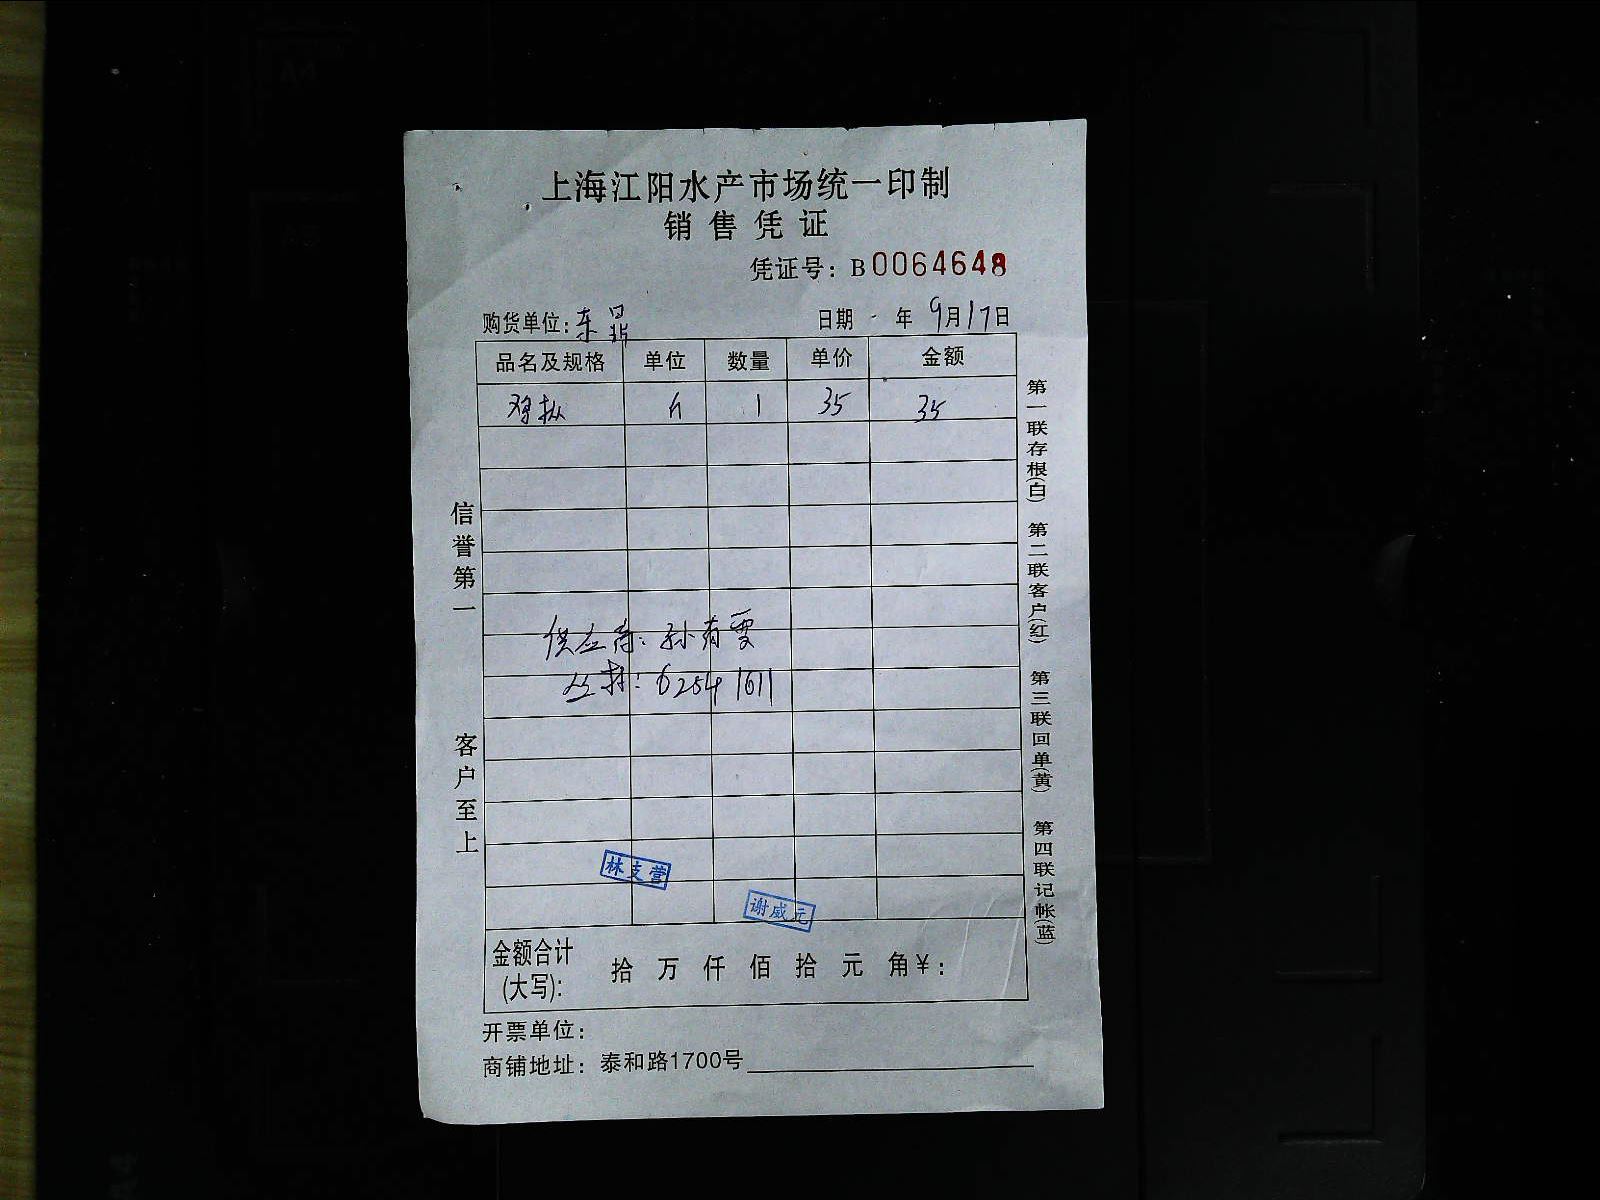 上海江阳水产市场统一印制
销售凭证
凭证号：B0064648
购货单位：东
日期 年 9月17日
品名及规格 单位 数量 单价 金额
鸡枞 1 35 35
供应商：孙有雯
6254 1611
林支营
谢威元
金额合计(大写)： 拾 万 仟 佰 拾 元 角￥：
开票单位：
商铺地址：泰和路1700号
信誉第一
客户至上
第一联存根(白) 第二联客户(红) 第三联回单(黄) 第四联记帐(蓝)